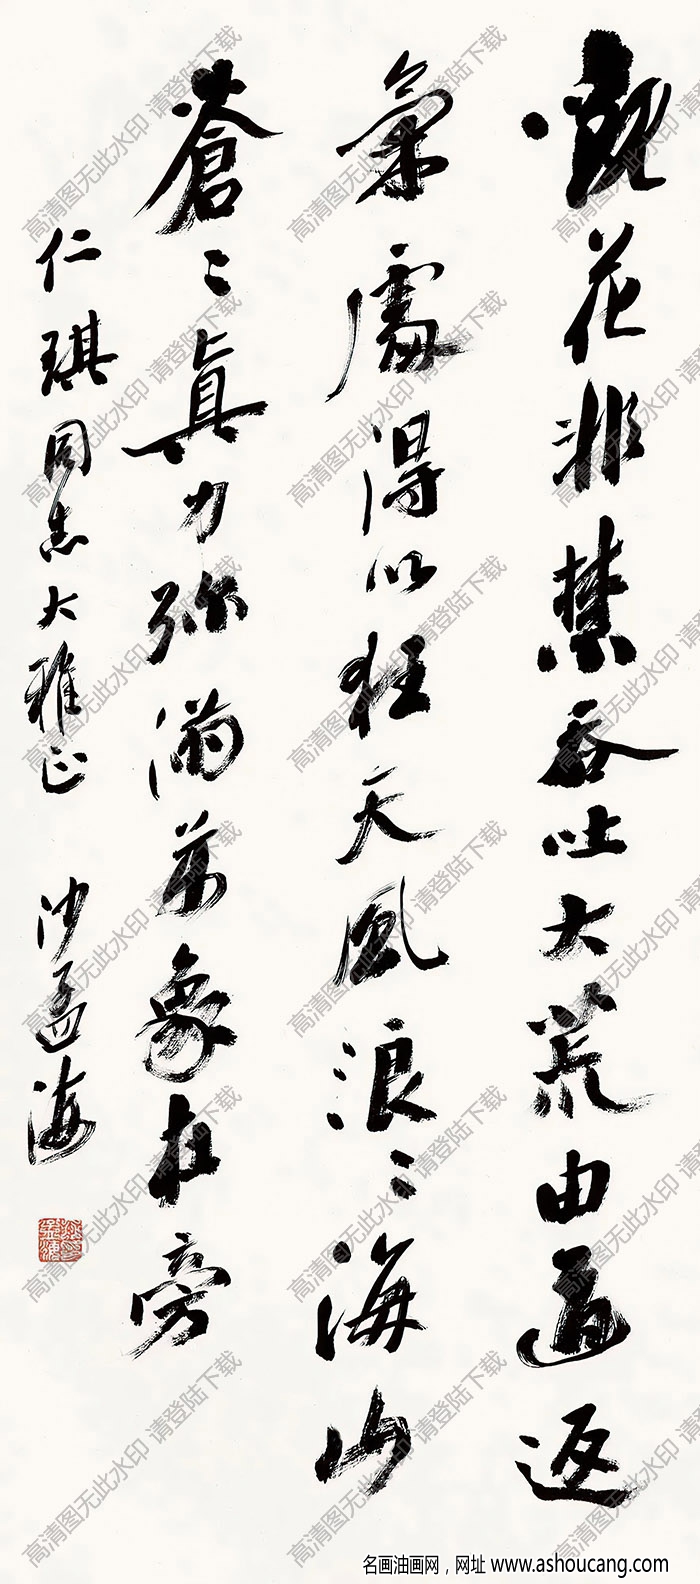 觀花非禁吞吐大荒由道返
氣處得以狂天風浪〻海山
蒼〻真力弥満萬象在旁
仁琪同志大雅正 沙孟海
高清图无此水印 请登陆下载
名画油画网，网址 www.ashoucang.com